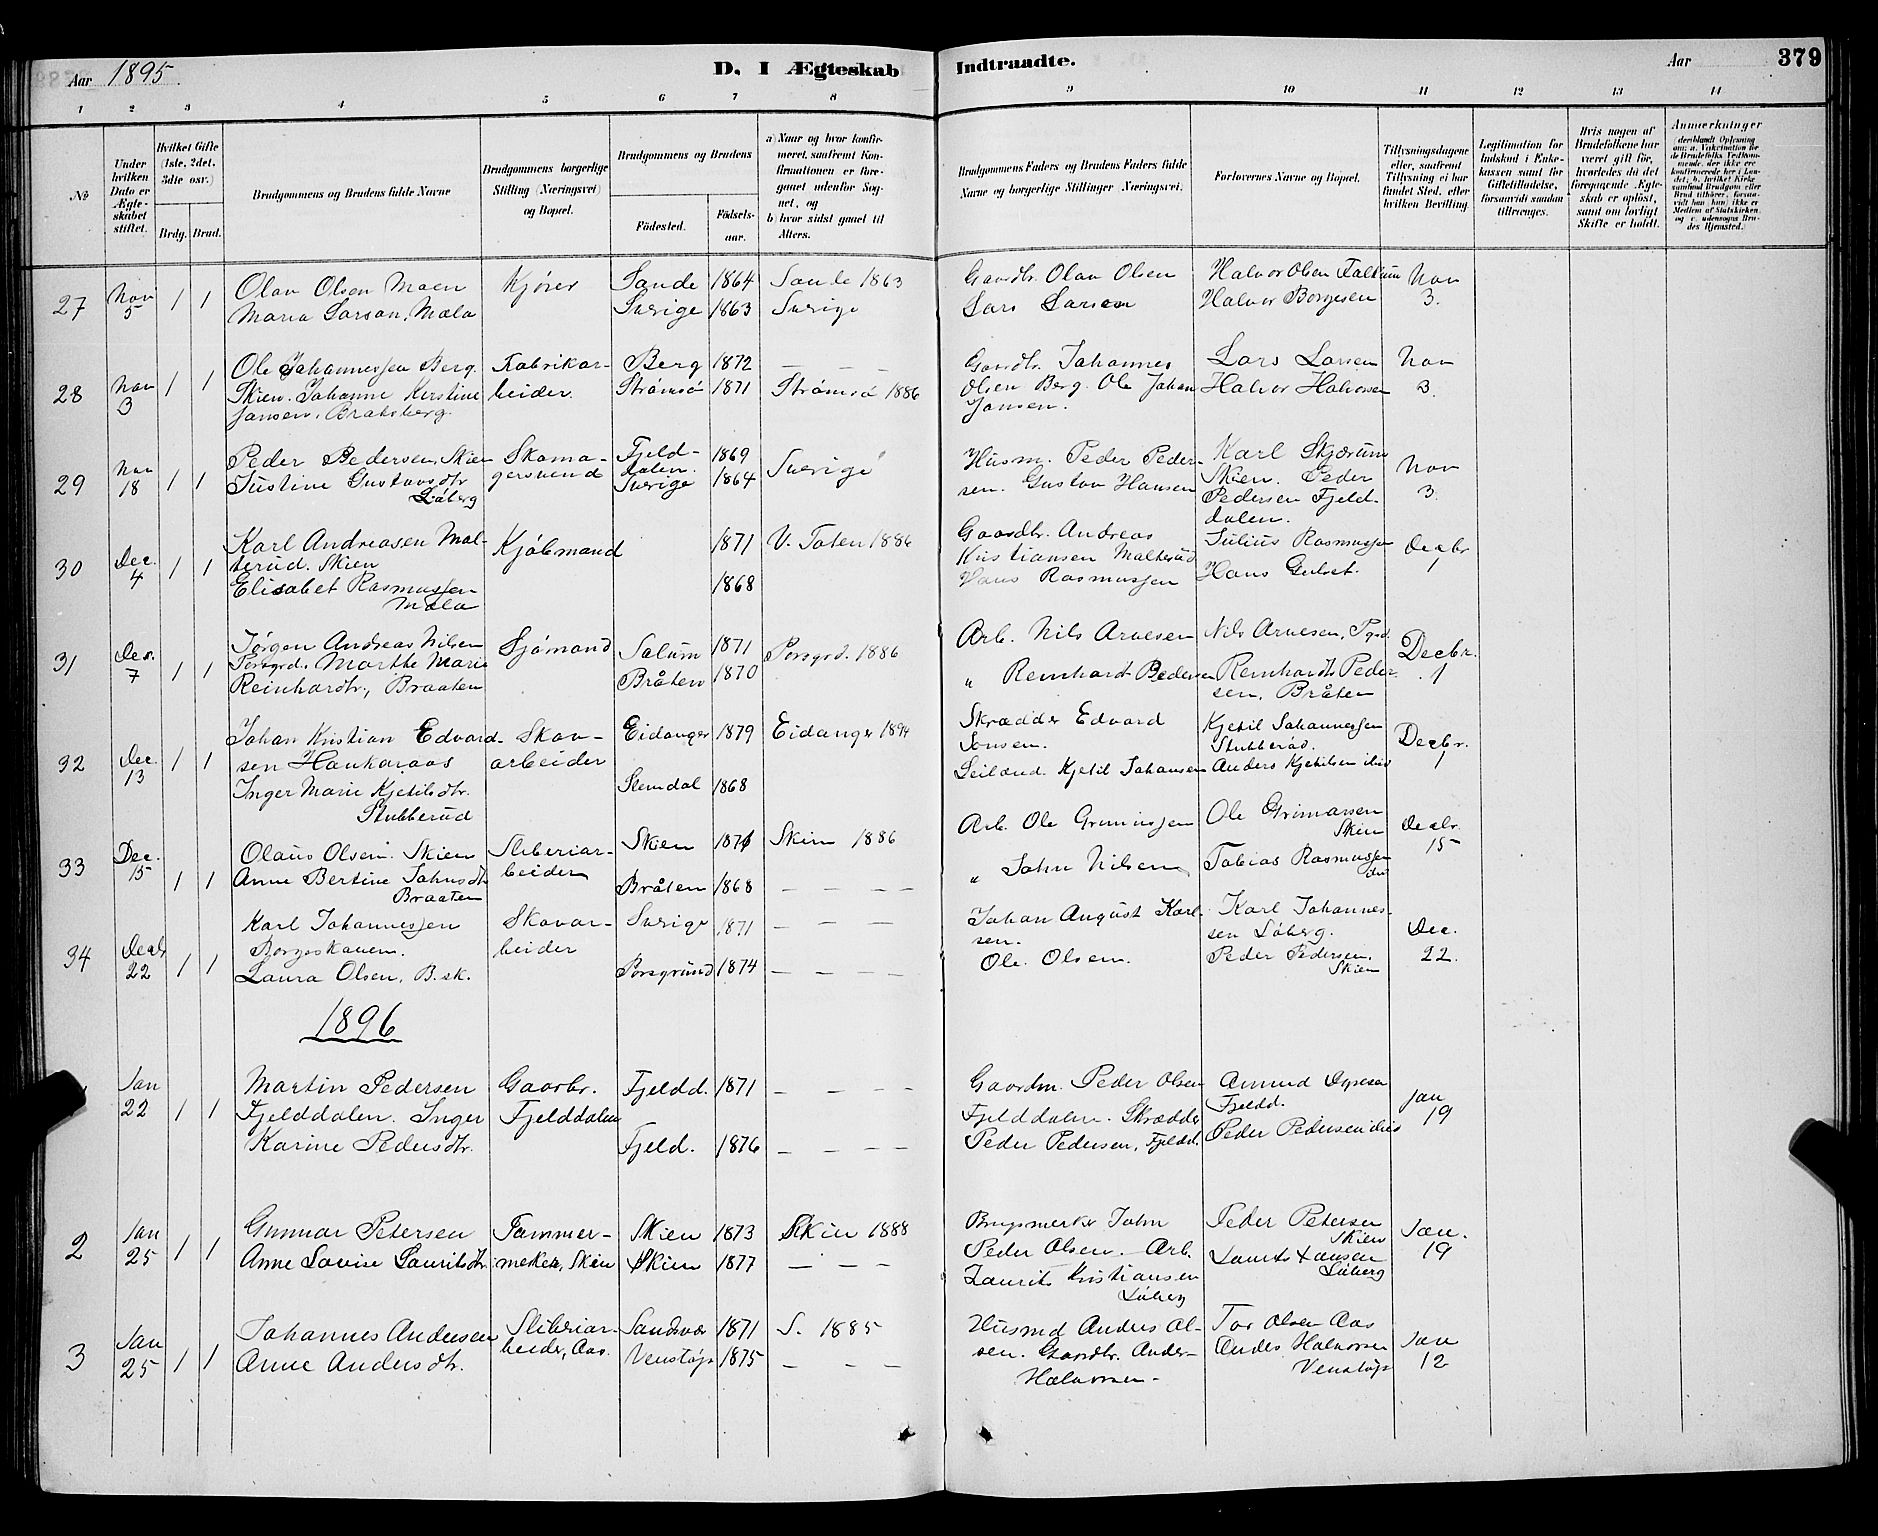 Aar 1895.
D. I Ægteskab Indtraadte.
Aar
379
1 2 3 4 5 6 7 8 9 10 11 12 13 14
No
Under hvilken Dato er Ægteskabet stiftet.
Hvilket Gifte (1ste, 2det, 3die osv.)
Brdg. Brud.
Brudgommens og Brudens fulde Navne
Brudgommens borgerlige Stilling (Næringsvei) og Bopæl.
Brudgommens og Brudens
Födested.
Födselsaar.
a) Naar og hvor konfirmeret, saafremt Konfirmationen er foregaaet udenfor Sognet, og
b) hvor sidst gaaet til Alters.
Brudgommens Faders og Brudens Faders fulde Navne og borgerlige Stillinger (Næringsvei).
Forlovernes Navne og Bopæl.
Tillysningsdagene eller, saafremt Tillysning ei har fundet Sted, efter hvilken Bevilling.
Legitimation for Indskud i Enkekassen samt for Giftetilladelse, forsaavidt saadan tiltrænges.
Hvis nogen af Brudefolkene har været gift för, hvorledes da det foregaaende Ægteskab er oplöst, samt om lovligt Skifte er holdt.
Anmærkninger
27 Nov 5 1 1 Olav Olsen Moen Kjører Sande 1864 Sande 1863 Gaardbr. Olav Olsen Halvor Olsen Falkum Nov 3.
Maria Larson, Mæla Sverige 1863 Sverige Lars Larsen Halvor Borgesen
28 Nov 3 1 1 Ole Johannessen Berg. Fabrikar- Berg 1872 — — — Gaardbr. Johannes Lars Larsen Nov 3.
Skien. Johanne Kirstine beider. Strømsö 1871 Strömsö 1886 Olsen Berg. Ole Johan Halvor Halvorsen
Jansen, Bratsberg. Jansen.
29 Nov 18 1 1 Peder Pedersen, Skien Skoma- Fjeld- 1869 Husm. Peder Peder- Karl Skjærum Nov 3.
Justine Gustavsdtr gersvend dalen. Sverige 1864 Sverige sen. Gustav Hansen Skien. Peder
Löberg Pedersen Fjeld-
dalen.
30 Dec. 4 1 1 Karl Andreasen Mal- Kjöbmand 1871 V. Toten 1886 Gaardbr. Andreas Julius Rasmussen Decbr 1
terud. Skien Kristiansen Malterud
Elisabet Rasmussen 1868 Hans Rasmussen Hans Gulset.
Mæla
31 Dec. 7 1 1 Jörgen Andreas Nilsen Sjömand Solum 1871 Porsgrd. 1886 Arb. Nils Arvesen Nils Arvesen, Pgrd. Decbr. 1
Porsgrd. Marthe Marie Bråten 1870 " Reinhardt Pedersen Reinhardt Peder-
Reinhardtr, Braaten sen, Bråten
32 Dec. 13 1 1 Johan Kristian Edvard- Skov- Eidanger 1879 Eidanger 1894 Skrædder Edvard Kjetil Johannessen Decbr. 1
sen Haukaraas arbeider Jonsen. Stubberud.
Inger Marie Kjetilsdtr. Slemdal 1868 Kjetil Johansen Anders Kjetilsen
Stubberud
33 Dec. 15 1 1 Olaus Olsen. Skien Sliberiar- Skien 1871 Skien 1886 Arb. Ole Ole Skien Decbr. 15
Anne Bertine Johnsdtr beider Bråten 1868 — — — — " John Nilsen Tobias Rasmussen
Braaten
34 Decbr 22 1 1 Karl Johannessen Skovar- Sverige 1871 — — — Johan August Karl- Karl Johannes- Dec. 22.
Borgeskauen. beider sen. sen Löberg.
Laura Olsen, B.sk. Porsgrund 1874 — — — — Ole Olsen. Peder Pedersen, Skien
1896
Jan 22 1 1 Martin Pedersen Gaardbr. Fjeldd. 1871 — — — — Gaardm. Peder Olsen Jan 19
Fjelddalen. Inger Fjelddalen Fjelddalen. Skrædder Fjeldd.
Karine Pedersdtr. Fjeld. 1876 — — — — Peder Pedersen, Fjeldd. Peder Pedersen
2 Jan 25 1 1 Gunnar Petersen Tømmer- Skien 1873 Skien 1888 John Peder Petersen Skien Jan. 19
Anne Lovise Lauritsdtr. Skien Skien 1877 — — — Peder Olsen. Arb. Löberg
Laurits Kristiansen
Löberg
3 Jan 25 1 1 Johannes Andersen Sliberiar- Sandsvær 1871 S. 1885 Husmd Anders Ol- Tor Olsen Aas Jan 12
Anne Andersdtr. beider, Aas. Venstöp 1875 — — — sen. Gaardbr. Anders Anders Halvorsen
Halvorsen. Venstöp